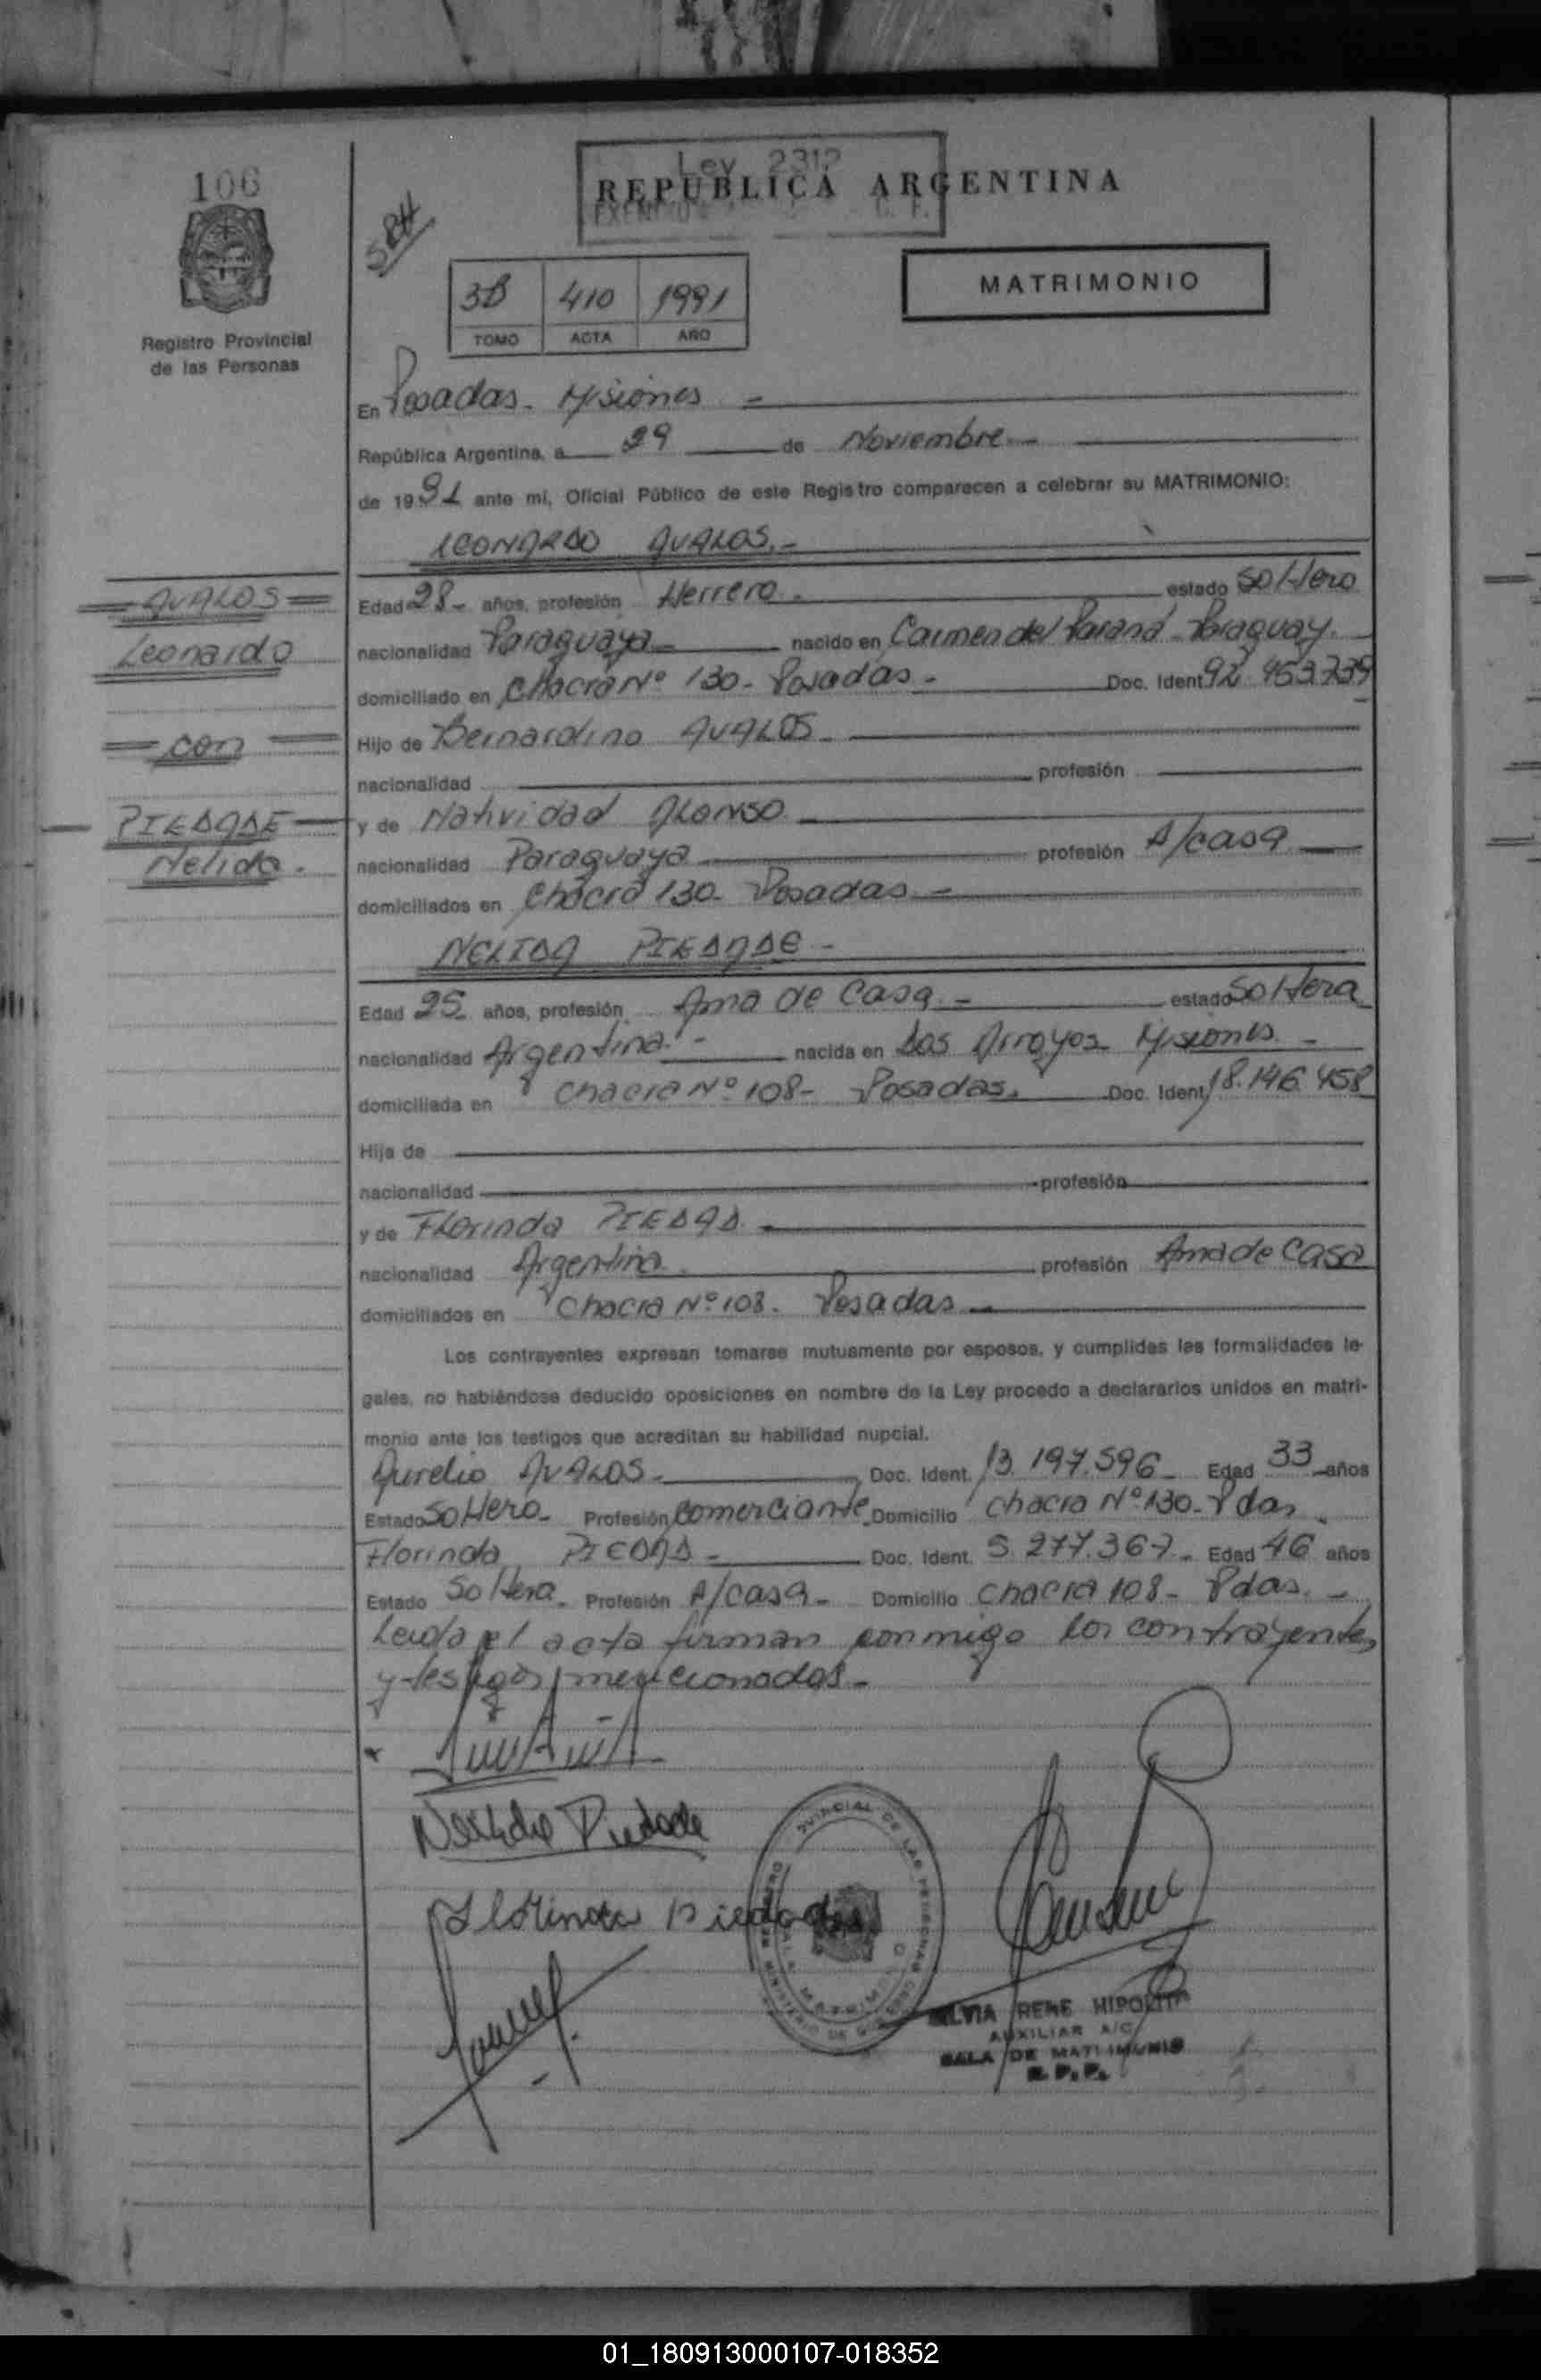 106
Ley 2312
REPUBLICA ARGENTINA
SRH
MATRIMONIO
3B 410 1991
TOMO ACTA AÑO
Registro Provincial
de las Personas
En Posadas - Misiones -
República Argentina, a 29 de Noviembre -
de 1991 ante mi, Oficial Público de este Registro comparecen a celebrar su MATRIMONIO:
LEONARDO AVALOS.-
AVALOS
Leonardo
con
PIEDADE
Nelida.
Edad 28- años, profesión Herrero. estado Soltero
nacionalidad Paraguaya nacido en Carmen del Paraná - Paraguay.
domiciliado en Chacra Nº 130 - Posadas - Doc. Ident. 92.453.739
Hijo de Bernardino AVALOS -
nacionalidad profesión
y de Natividad ALONSO
nacionalidad Paraguaya profesión A/casa
domiciliados en Chacra 130 - Posadas -
NELIDA PIEDADE -
Edad 25 años, profesión Ama de Casa - estado Soltera
nacionalidad Argentina - nacida en Dos Arroyos Misiones -
domiciliada en Chacra Nº 108 - Posadas. Doc. Ident. 18.146.458
Hija de
nacionalidad profesión
y de Florinda PIEDAD
nacionalidad Argentina profesión Ama de Casa
domiciliados en Chacra Nº 108 - Posadas
Los contrayentes expresan tomarse mutuamente por esposos, y cumplidas las formalidades le-
gales, no habiéndose deducido oposiciones en nombre de la Ley procedo a declararlos unidos en matri-
monio ante los testigos que acreditan su habilidad nupcial.
Aurelio AVALOS - Doc. Ident. 13.197.596 - Edad 33 años
Estado Soltero - Profesión Comerciante Domicilio Chacra Nº 130 - Pdas.
Florinda PIEDAD - Doc. Ident. 5.277.367 - Edad 46 años
Estado Soltera - Profesión A/casa - Domicilio Chacra 108 - Pdas. -
Leida el acta firman conmigo los contrayentes
y testigos mencionados -
Nelida Piedade
Florinda Piedade
SILVIA RENE HIPOLITO
AUXILIAR A/C
SALA DE MATRIMONIO
R. P. P.
01_180913000107-018352